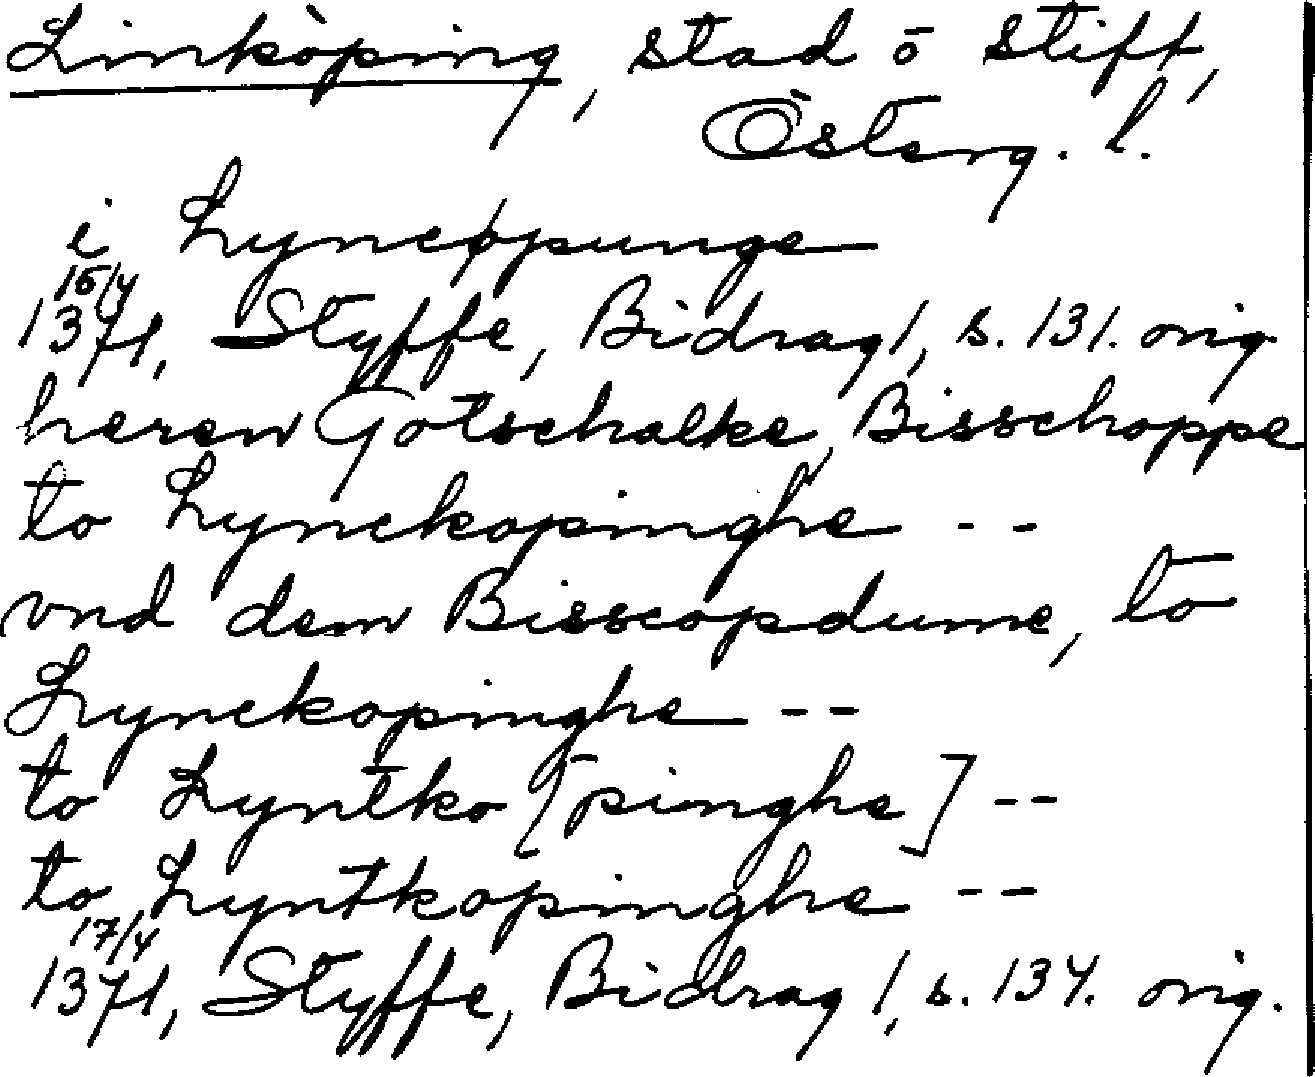 Linköping, stad o stift,
Österg. l.
i Lyncøpunge
15/4
1371, Styffe, Bidrag 1, s. 131. orig
heren Gotschalke, Bisschoppe
to Lynckopinghe --
vnd dem Bisscopdume, to
Lynckopinghe --
to Lyntko [pinghe] --
to Lyntkopinghe --
17/4
1371, Styffe, Bidrag 1, s. 134. orig.